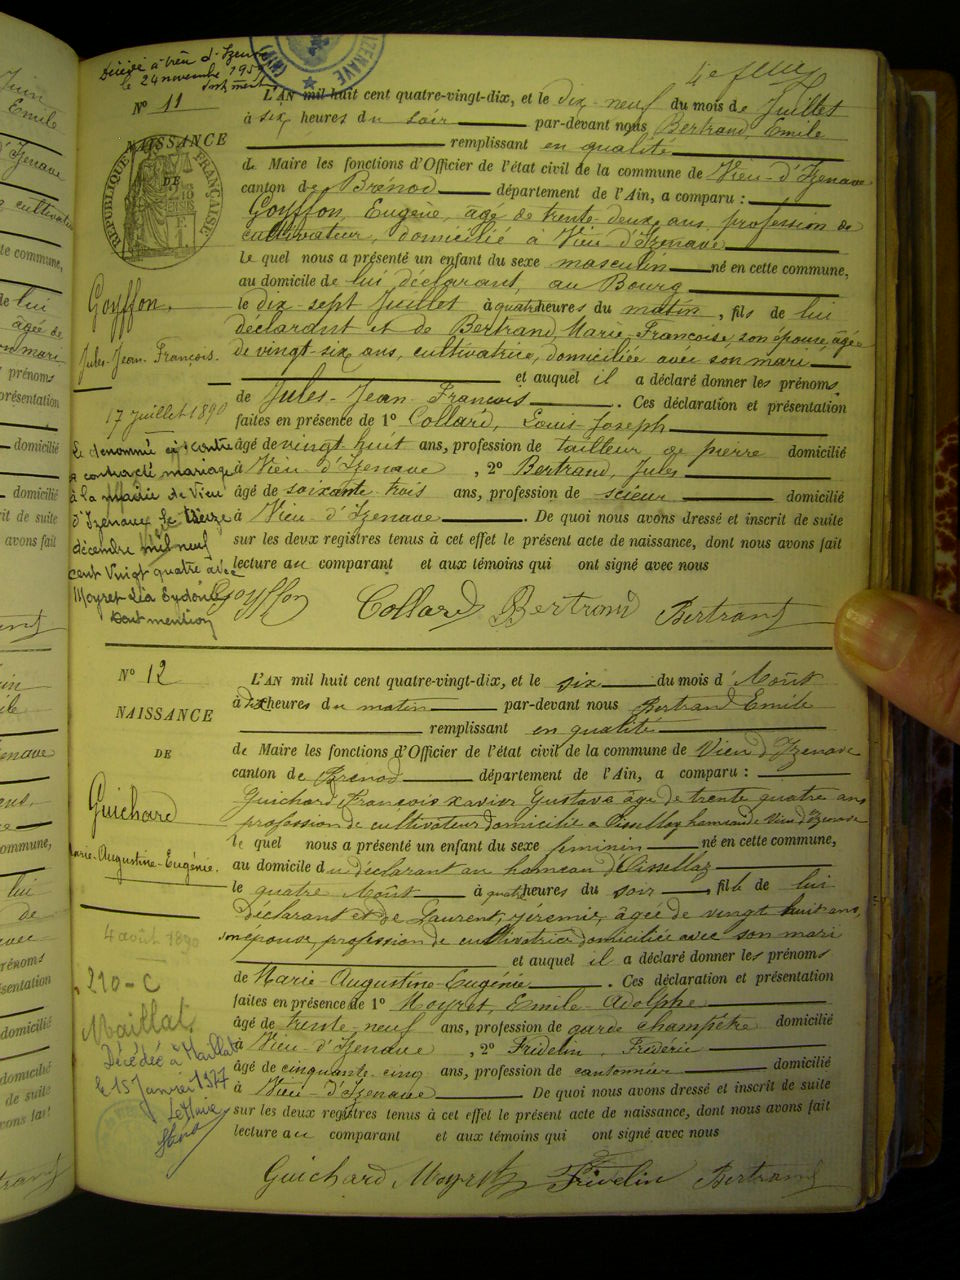 Décédé à Vieu d'Izenave
le 24 novembre 195
dont ment
IZENAVE
4e feuil
N° 11
NAISSANCE
DE
RÉPUBLIQUE FRANÇAISE
Goyffon,
Jules-Jean-François.
17 juillet 1890
Le dénommé ci-contre
a contracté mariage
à la mairie de Vieu
d'Izenave le treize
décembre mil neuf
cent vingt quatre avec
Moyret Léa Eydonie
dont mention
L'AN mil huit cent quatre-vingt-dix, et le dix-neuf du mois de Juillet
à six heures du soir par-devant nous, Bertrand, Emile
remplissant en qualité
de Maire les fonctions d'Officier de l'état civil de la commune de Vieu-d'Izenave
canton de Brénod département de l'Ain, a comparu :
Goyffon, Eugène, âgé de trente-deux ans, profession de
cultivateur, domicilié à Vieu-d'Izenave
le quel nous a présenté un enfant du sexe masculin né en cette commune,
au domicile de lui déclarant, au Bourg
le dix-sept Juillet à quatre heures du matin, fils de lui
déclarant et de Bertrand, Marie-Françoise, son épouse, âgée
de vingt-six ans, cultivatrice, domiciliée avec son mari
et auquel il a déclaré donner les prénoms
de Jules-Jean-François. Ces déclaration et présentation
faites en présence de 1° Collard, Louis-Joseph
âgé de vingt huit ans, profession de tailleur de pierre domicilié
à Vieu d'Izenave, 2° Bertrand, Jules
âgé de soixante trois ans, profession de scieur domicilié
à Vieu-d'Izenave. De quoi nous avons dressé et inscrit de suite
sur les deux registres tenus à cet effet le présent acte de naissance, dont nous avons fait
lecture au comparant et aux témoins qui ont signé avec nous
Goyffon Collard Bertrand Bertrand
N° 12
NAISSANCE
DE
Guichard
Marie-Augustine-Eugénie.
4 août 1890
210-C
Maillat
Décédée à Maillat
le 15 Janvier 1977
Le Maire
L'AN mil huit cent quatre-vingt-dix, et le six du mois d'Août
à dix heures du matin par-devant nous Bertrand Emile
remplissant en qualité
de Maire les fonctions d'Officier de l'état civil de la commune de Vieu d'Izenave
canton de Brénod département de l'Ain, a comparu :
Guichard François Xavier Gustave âgé de trente quatre ans
profession de cultivateur domicilié a Oissellaz hameau de Vieu d'Izenave
le quel nous a présenté un enfant du sexe féminin né en cette commune,
au domicile du déclarant au hameau d'Oissellaz
le quatre Août à quatre heures du soir, fille de lui
déclarant et de Laurent, Jérémie, âgée de vingt huit ans,
son épouse, profession de cultivatrice domiciliée avec son mari
et auquel il a déclaré donner les prénoms
de Marie-Augustine-Eugénie. Ces déclaration et présentation
faites en présence de 1° Moyret, Emile-Adolphe
âgé de trente-neuf ans, profession de garde champêtre domicilié
à Vieu-d'Izenave, 2° Fridelin, Frédéric
âgé de cinquante-cinq ans, profession de cantonnier domicilié
à Vieu-d'Izenave. De quoi nous avons dressé et inscrit de suite
sur les deux registres tenus à cet effet le présent acte de naissance, dont nous avons fait
lecture au comparant et aux témoins qui ont signé avec nous
Guichard Moyret Fridelin Bertrand